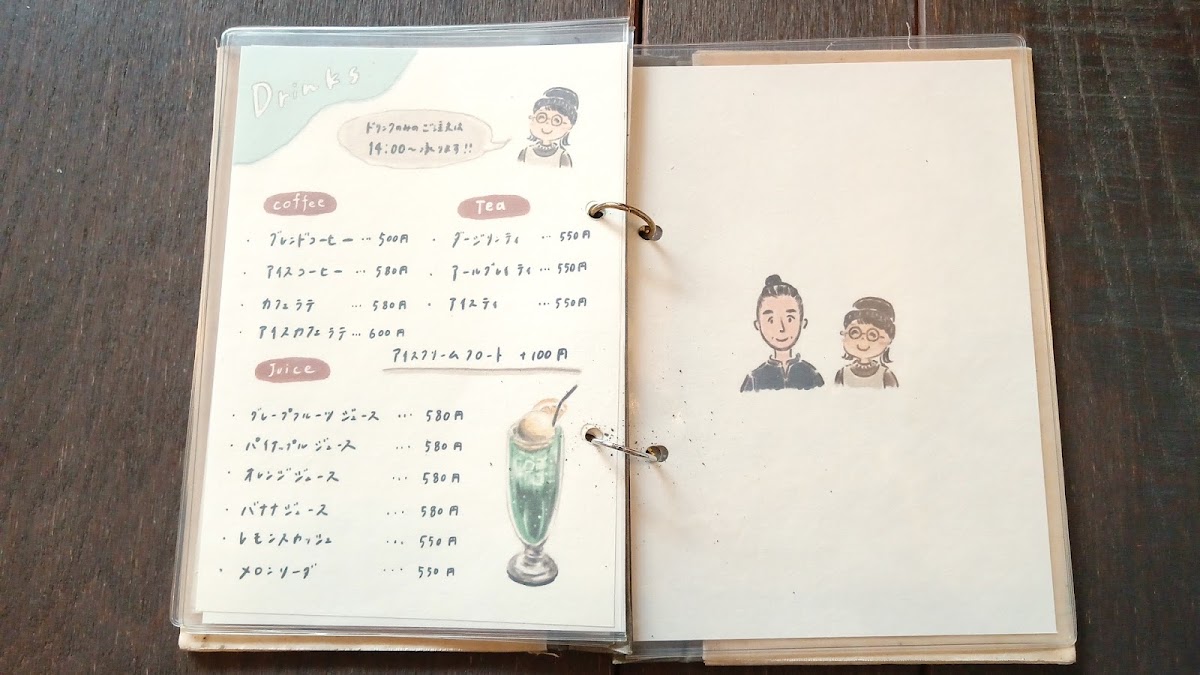 Drinks
ドリンクのみのご注文は
14:00〜承ります!!
coffee
・ブレンドコーヒー … 500円
・アイスコーヒー … 580円
・カフェラテ … 580円
・アイスカフェラテ … 600円
Tea
・ダージリンティ … 550円
・アールグレイティ … 550円
・アイスティ … 550円
アイスクリームフロート +100円
Juice
・グレープフルーツジュース … 580円
・パイナップルジュース … 580円
・オレンジジュース … 580円
・バナナジュース … 580円
・レモンスカッシュ … 550円
・メロンソーダ … 550円